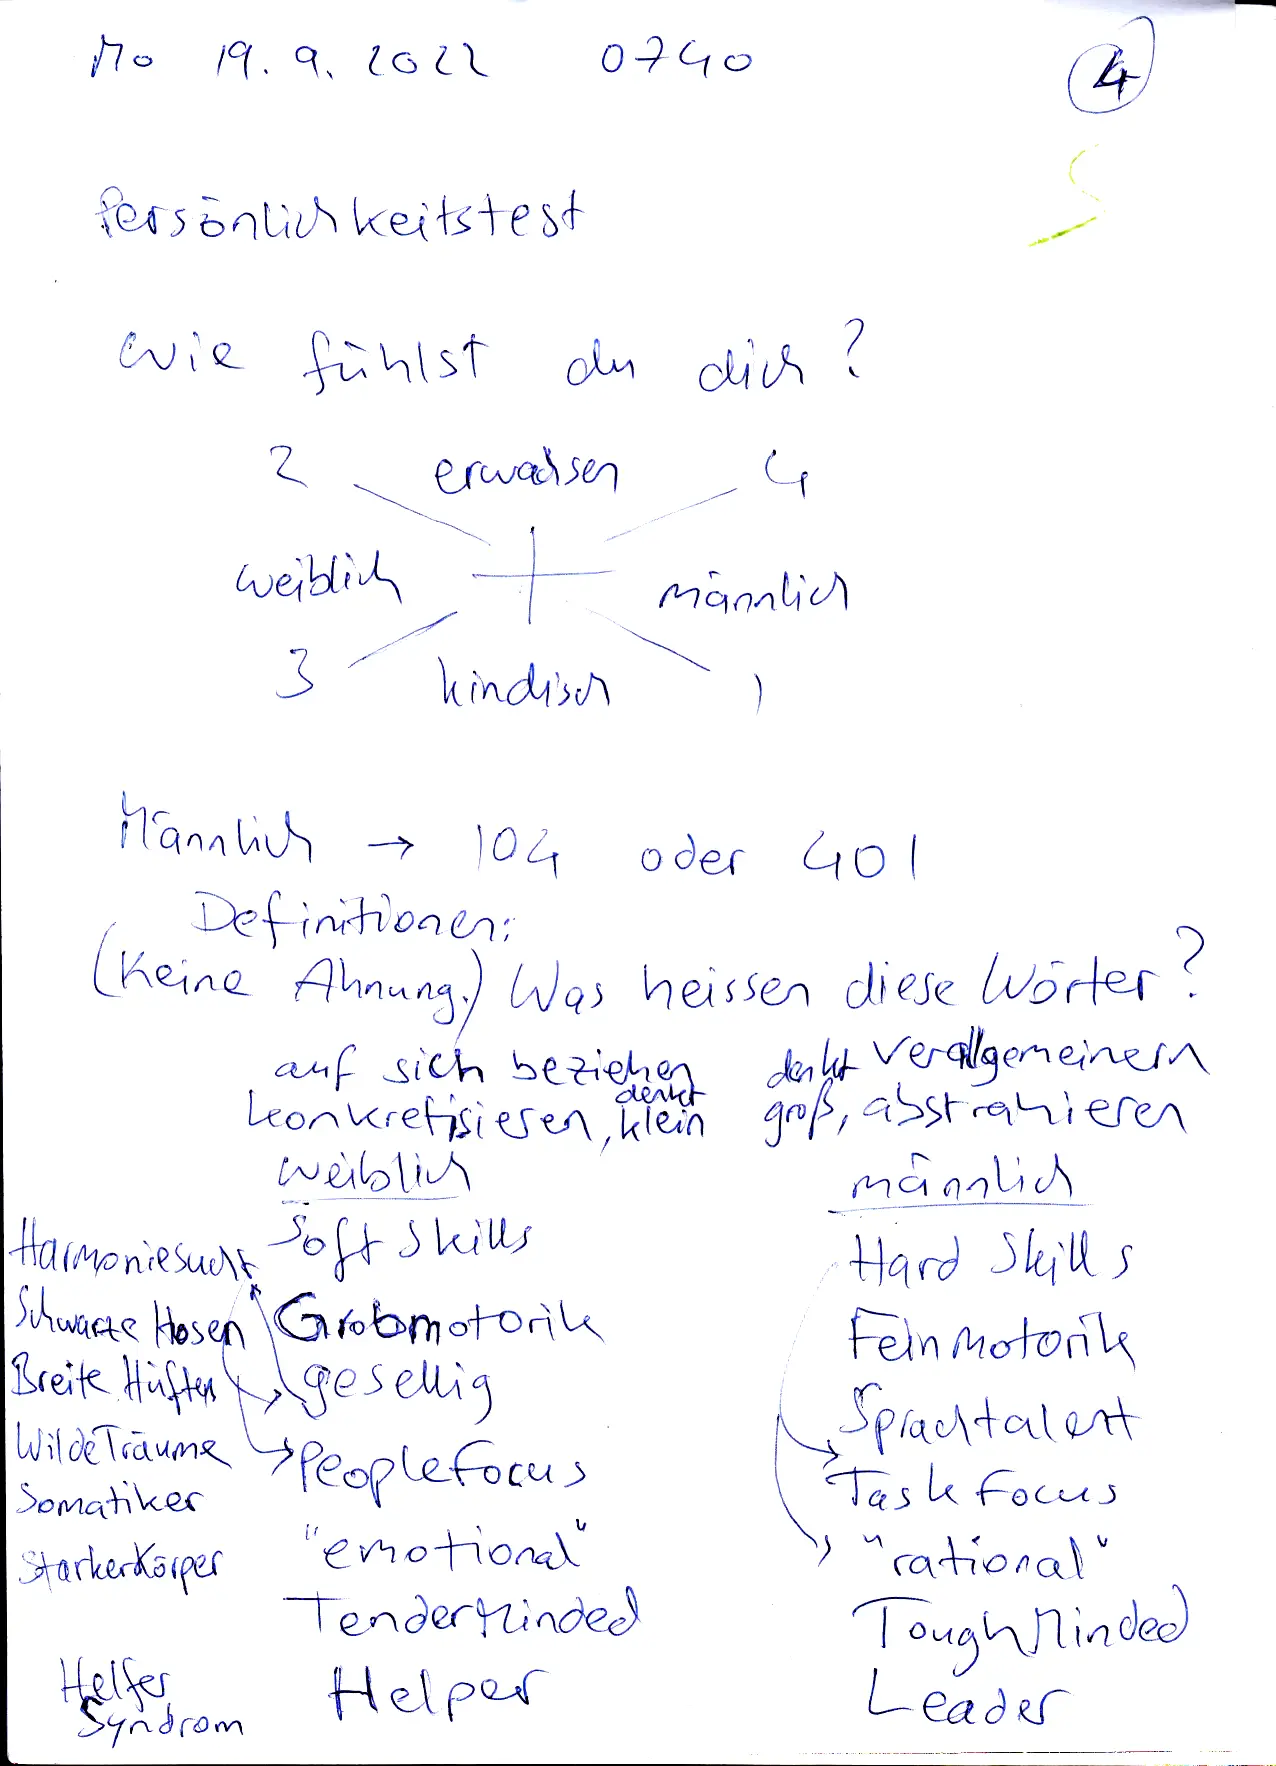 Mo 19. 9. 2022 0740 4
Persönlichkeitstest
Wie fühlst du dich?
2 erwachsen 4
weiblich männlich
3 kindisch 1
Männlich → 104 oder 401
Definitionen:
(Keine Ahnung.) Was heissen diese Wörter?
auf sich beziehen denkt verallgemeinern
konkretisieren, denkt klein groß, abstrahieren
weiblich männlich
Harmoniesucht Soft Skills Hard Skills
Schwarze Hosen Grobmotorik Feinmotorik
Breite Hüften gesellig Sprachtalent
Wilde Träume PeopleFocus Task Focus
Somatiker "emotional" "rational"
Starker Körper TenderMinded ToughMinded
Helfer Helper Leader
Syndrom